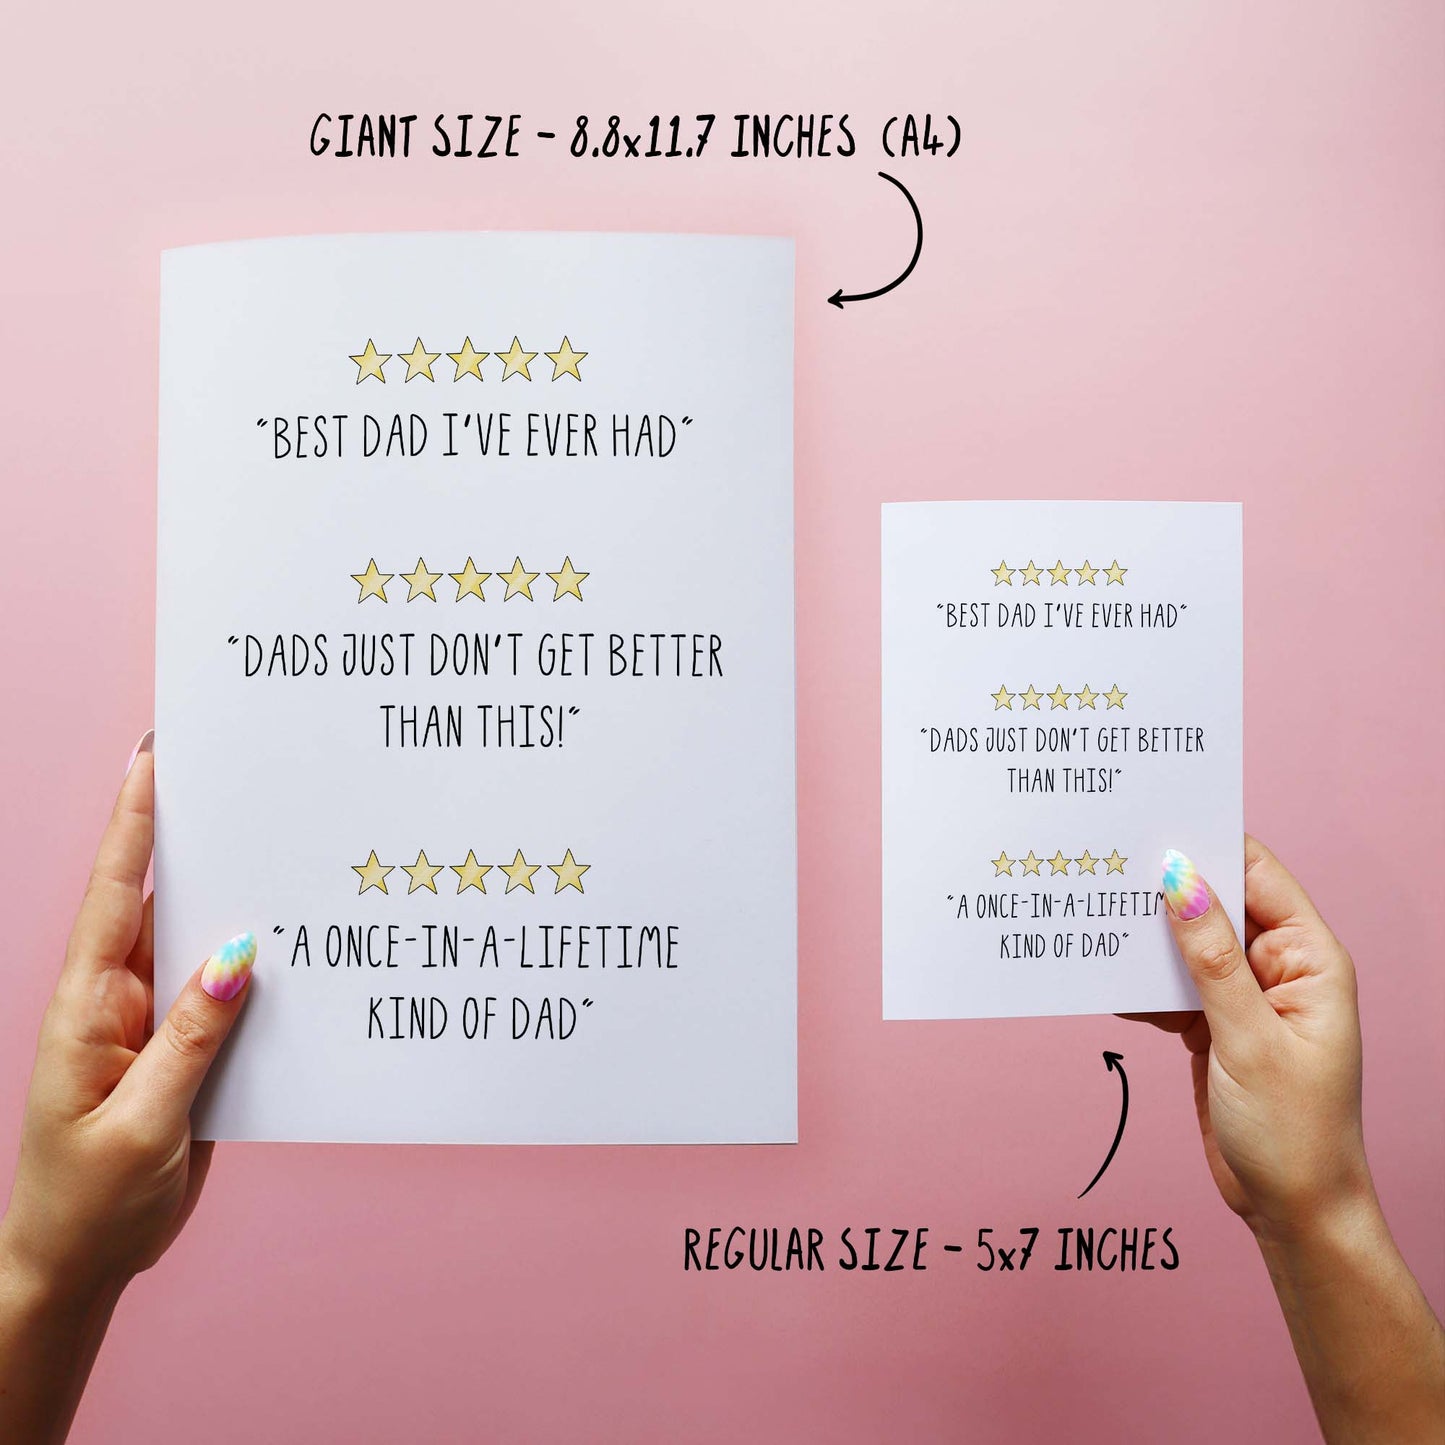 GIANT SIZE - 8.8x11.7 INCHES (A4)
"BEST DAD I'VE EVER HAD"
"DADS JUST DON'T GET BETTER
THAN THIS!"
"A ONCE-IN-A-LIFETIME
KIND OF DAD"
"BEST DAD I'VE EVER HAD"
"DADS JUST DON'T GET BETTER
THAN THIS!"
"A ONCE-IN-A-
KIND OF DAD"
REGULAR SIZE - 5x7 INCHES